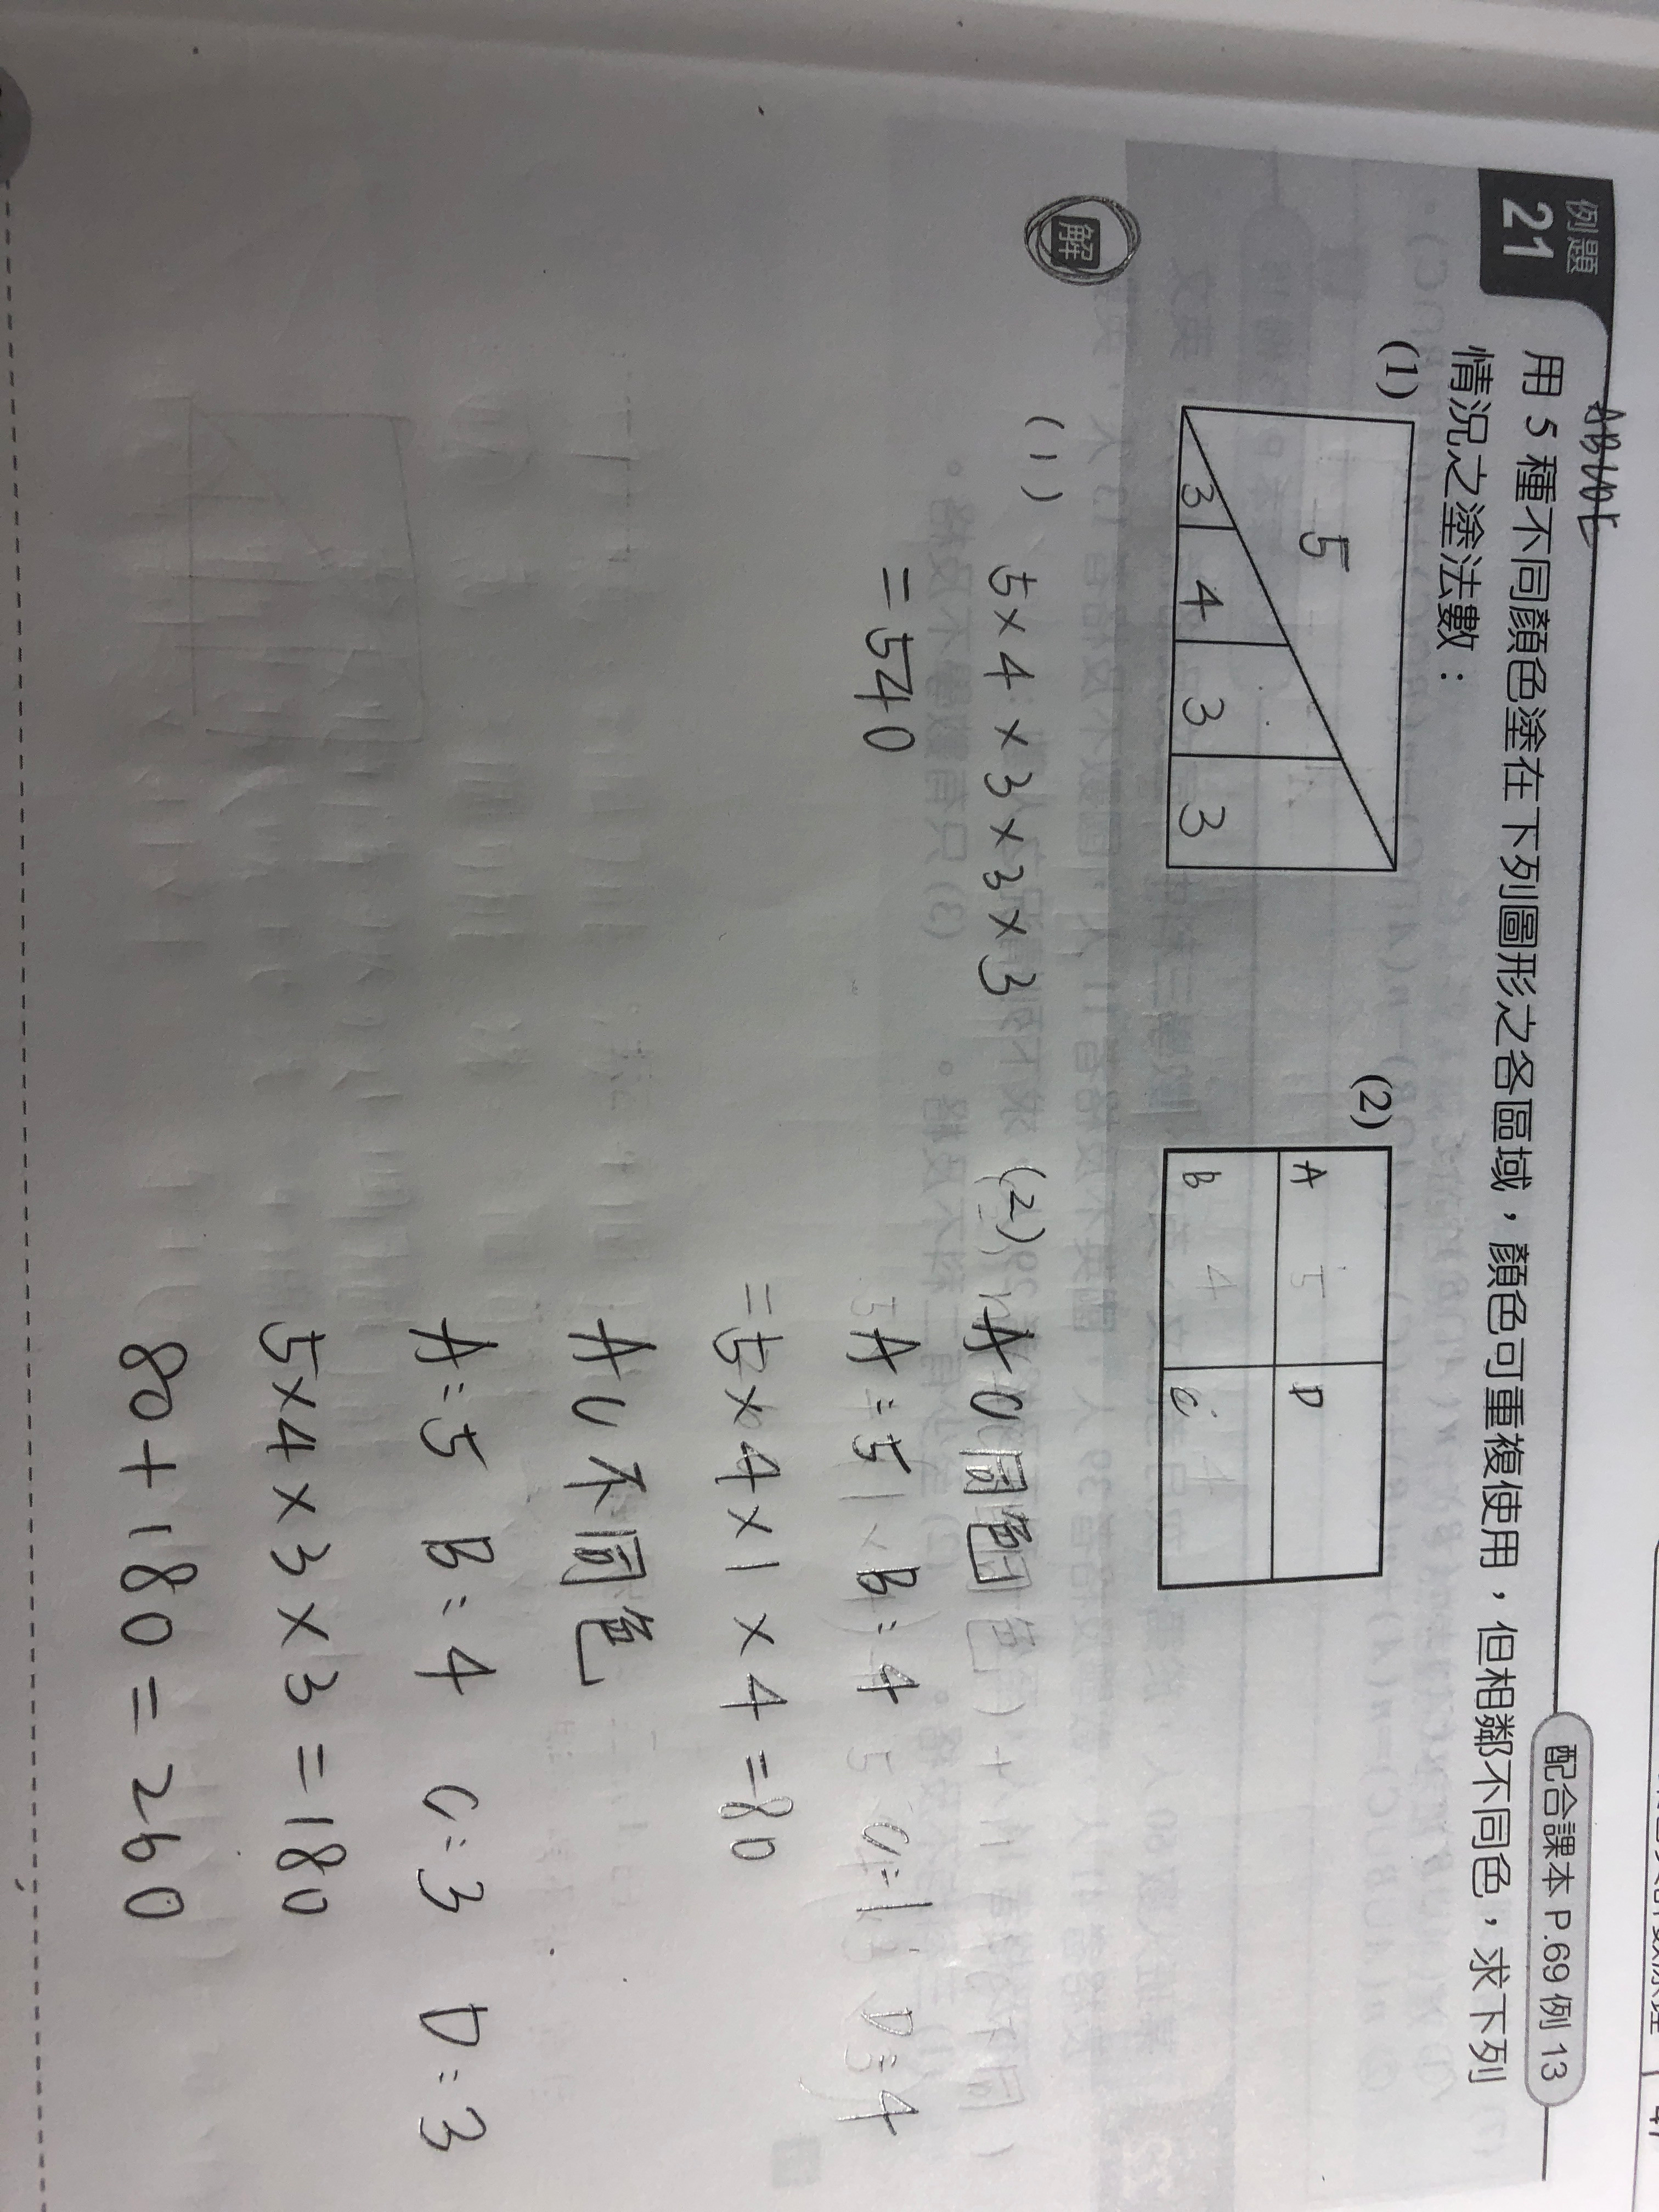 例題 21
配合課本 P.69 例 13
用 5 種不同顏色塗在下列圖形之各區域，顏色可重複使用，但相鄰不同色，求下列
情況之塗法數：
(1)
5
3 4 3 3
(2)
A 5 D
B 4 C 4
解
(1) 5×4×3×3×3
=540
(2) AC同色
A=5 B=4 C=1 D=4
=5×4×1×4=80
AC不同色
A=5 B=4 C=3 D=3
5×4×3×3=180
80+180=260